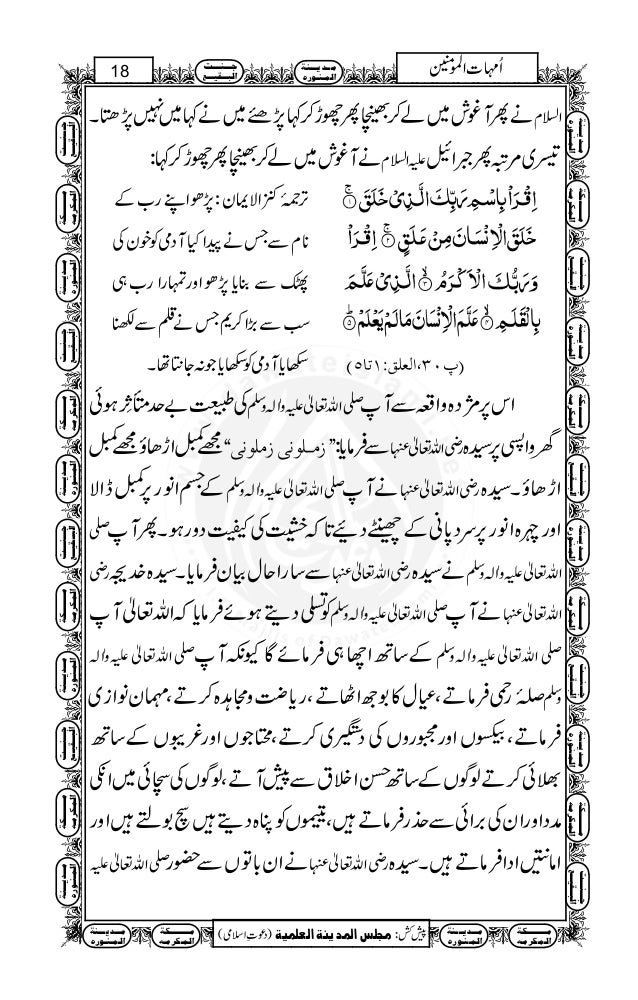 اُمہات المؤمنین
مدینۃ المنورہ
جنت البقیع
18
السلام نے پھر آغوش میں لے کر بھینچا پھر چھوڑ کر کہا پڑھئے میں نے کہا میں نہیں پڑھتا۔
تیسری مرتبہ پھر جبرائیل علیہ السلام نے آغوش میں لے کر بھینچا پھر چھوڑ کر کہا:
اِقْرَاْ بِاسْمِ رَبِّكَ الَّذِیْ خَلَقَ ۚ﴿۱﴾
خَلَقَ الْاِنْسَانَ مِنْ عَلَقٍ ۚ﴿۲﴾ اِقْرَاْ
وَ رَبُّكَ الْاَكْرَمُ ۙ﴿۳﴾ الَّذِیْ عَلَّمَ
بِالْقَلَمِ ۙ﴿۴﴾ عَلَّمَ الْاِنْسَانَ مَا لَمْ یَعْلَمْ ؕ﴿۵﴾
(پ ۳۰، العلق: ۱ تا ۵)
ترجمۂ کنز الایمان: پڑھو اپنے رب کے
نام سے جس نے پیدا کیا آدمی کو خون کی
پھٹک سے بنایا پڑھو اور تمہارا رب ہی
سب سے بڑا کریم جس نے قلم سے لکھنا
سکھایا آدمی کو سکھایا جو نہ جانتا تھا۔
اس پر مژدہ واقعہ سے آپ صلی اللہ تعالیٰ علیہ والہ وسلم کی طبیعت بے حد متأثر ہوئی
گھر واپسی پر سیدہ رضی اللہ تعالیٰ عنہا سے فرمایا: ”زملونی زملونی“ مجھے کمبل اڑھاؤ مجھے کمبل
اڑھاؤ۔ سیدہ رضی اللہ تعالیٰ عنہا نے آپ صلی اللہ تعالیٰ علیہ والہ وسلم کے جسم انور پر کمبل ڈالا
اور چہرہ انور پر سرد پانی کے چھینٹے دیئے تاکہ خشیت کی کیفیت دور ہو۔ پھر آپ صلی
اللہ تعالیٰ علیہ والہ وسلم نے سیدہ رضی اللہ تعالیٰ عنہا سے سارا حال بیان فرمایا۔ سیدہ خدیجہ رضی
اللہ تعالیٰ عنہا نے آپ صلی اللہ تعالیٰ علیہ والہ وسلم کو تسلی دیتے ہوئے فرمایا کہ اللہ تعالیٰ آپ
صلی اللہ تعالیٰ علیہ والہ وسلم کے ساتھ اچھا ہی فرمائے گا کیونکہ آپ صلی اللہ تعالیٰ علیہ والہ
وسلم صلۂ رحمی فرماتے، عیال کا بوجھ اٹھاتے، ریاضت و مجاہدہ کرتے، مہمان نوازی
فرماتے، بیکسوں اور مجبوروں کی دستگیری کرتے، محتاجوں اور غریبوں کے ساتھ
بھلائی کرتے لوگوں کے ساتھ حسن اخلاق سے پیش آتے، لوگوں کی سچائی میں انکی
مدد اور ان کی برائی سے حذر فرماتے ہیں، یتیموں کو پناہ دیتے ہیں سچ بولتے ہیں اور
امانتیں ادا فرماتے ہیں۔ سیدہ رضی اللہ تعالیٰ عنہا نے ان باتوں سے حضور صلی اللہ تعالیٰ علیہ
پیش کش: مجلس المدینۃ العلمیۃ (دعوتِ اسلامی)